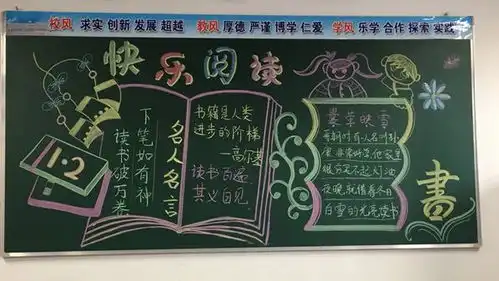 校风 求实 创新 发展 超越 教风 厚德 严谨 博学 仁爱 学风 乐学 合作 探索 实践
快乐阅读
1·2
读书破万卷
下笔如有神
名人名言
书籍是人类
进步的阶梯
高尔基
读书百遍
其义自见
映雪
时有人名叫孙
康,非常好学,他家里
不起灯油
夜晚,就借着冬日
白雪的光亮读书
書